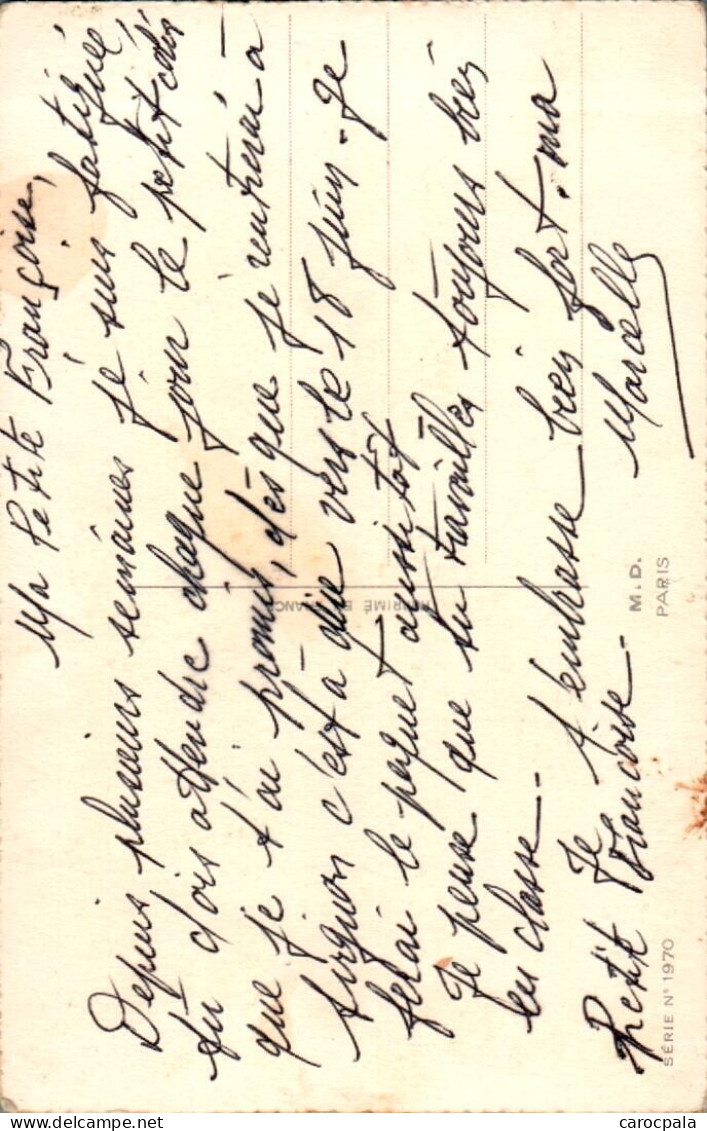 Ma Petite Françoise,
Depuis plusieurs semaines je suis fatiguée
tu dois attendre chaque jour le petit colis
que je t'ai promis, dès que je rentrerai à
c'est à dire vers le 18 Juin - Je
ferai le paquet aussitôt
Je pense que tu travailles toujours bien
en classe -
Je t'embrasse bien fort. ma
Petite Françoise -
Marcelle
IMPRIMÉ EN FRANCE
M.D.
PARIS
SÉRIE N° 1970
carocpala